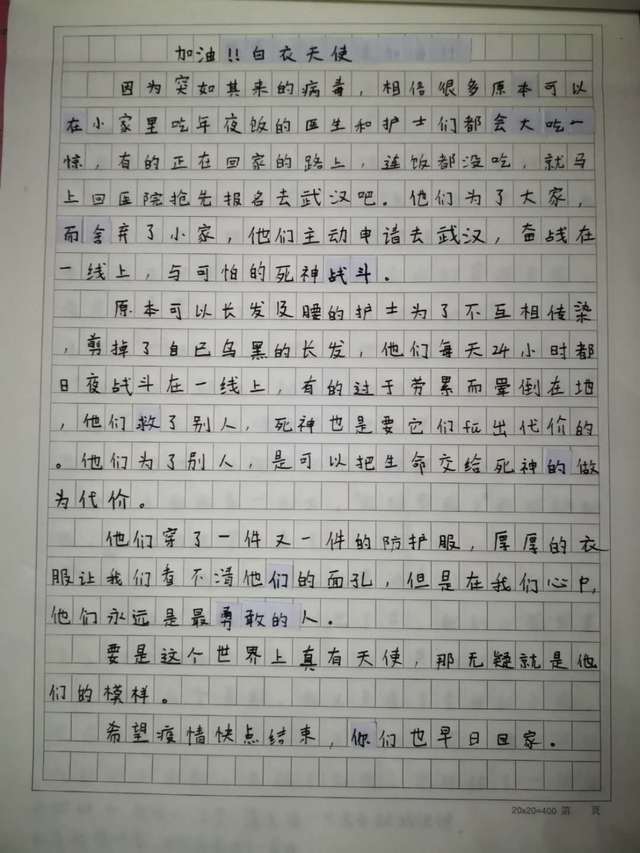 加油!!白衣天使
因为突如其来的病毒，相信很多原本可以
在小家里吃年夜饭的医生和护士们都会大吃一
惊，有的正在回家的路上，连饭都没吃，就马
上回医院抢先报名去武汉吧。他们为了大家，
而舍弃了小家，他们主动申请去武汉，奋战在
一线上，与可怕的死神战斗。
原本可以长发及腰的护士为了不互相传染
，剪掉了自已乌黑的长发，他们每天24小时都
日夜战斗在一线上，有的过于劳累而晕倒在地
，他们救了别人，死神也是要它们付出代价的
。他们为了别人，是可以把生命交给死神的做
为代价。
他们穿了一件又一件的防护服，厚厚的衣
服让我们看不清他们的面孔，但是在我们心中，
他们永远是最勇敢的人。
要是这个世界上真有天使，那无疑就是他
们的模样。
希望疫情快点结束，你们也早日回家。
20x20=400 第 页